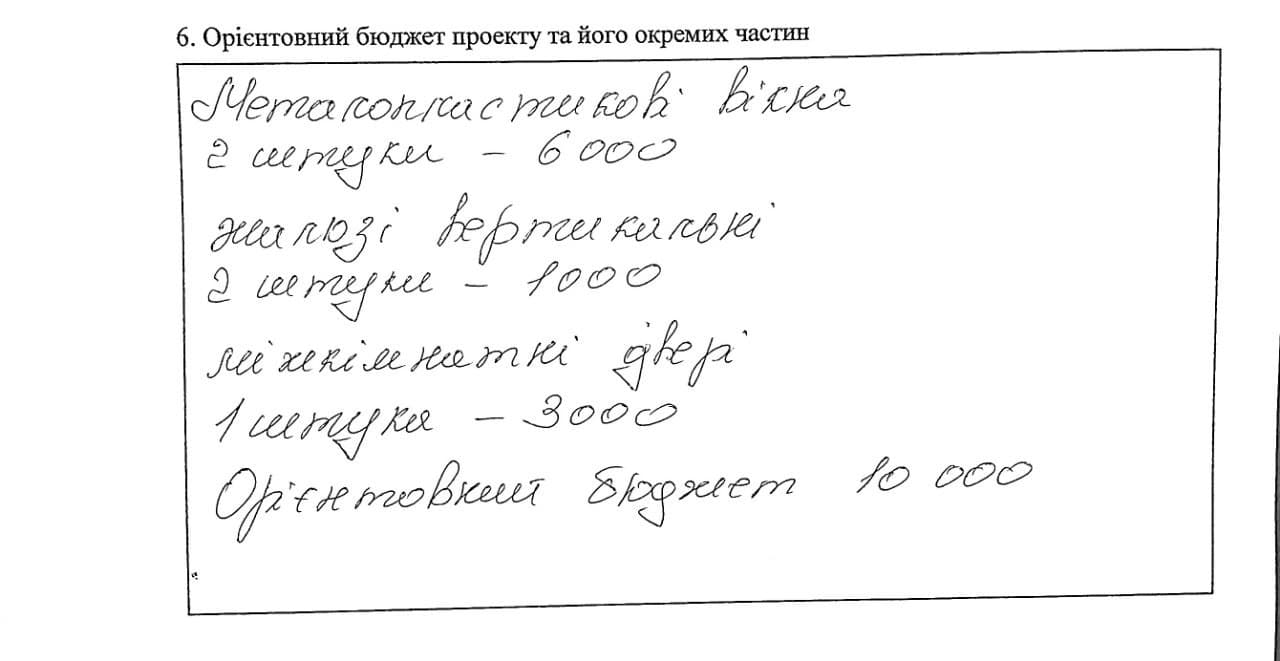 6. Орієнтовний бюджет проекту та його окремих частин
Металопластикові вікна
2 штуки – 6000
жалюзі вертикальні
2 штуки – 1000
міжкімнатні двері
1 штука – 3000
Орієнтовний бюджет 10 000